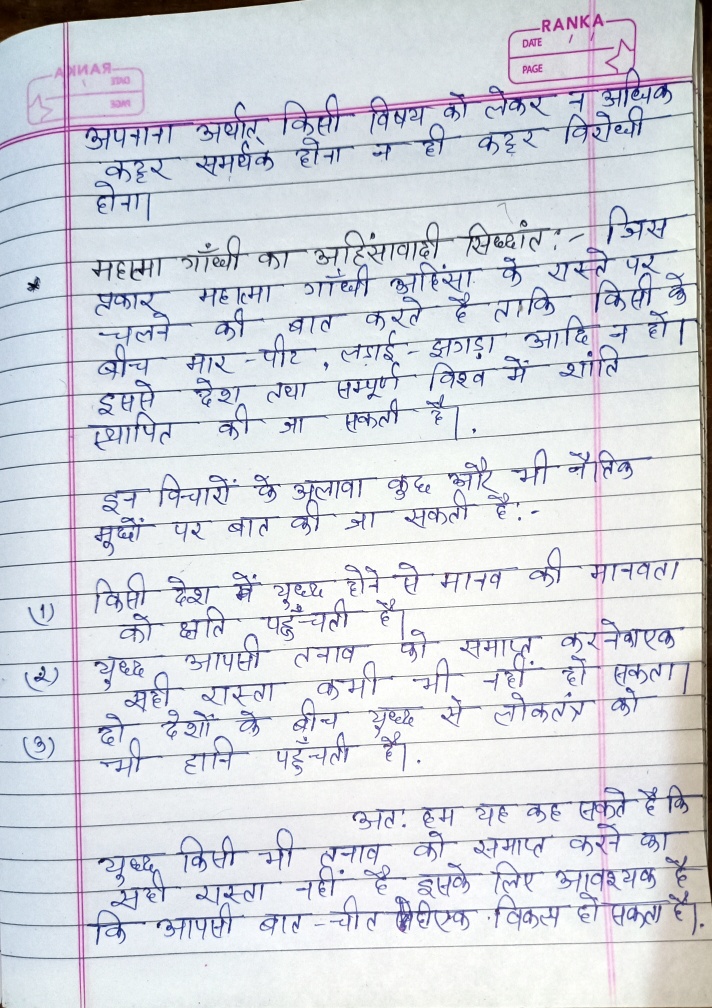 RANKA
DATE / /
PAGE
अपनाना अर्थात् किसी विषय को लेकर न अधिक
कट्टर समर्थक होना न ही कट्टर विरोधी
होना।
* महात्मा गाँधी का अहिंसावादी सिध्धांत:- जिस
प्रकार महात्मा गाँधी अहिंसा के रास्ते पर
चलने की बात करते है ताकि किसी के
बीच मार-पीट, लड़ाई-झगड़ा आदि न हो।
इससे देश तथा सम्पूर्ण विश्व में शांति
स्थापित की जा सकती है।.
इन विचारों के अलावा कुछ और भी नैतिक
मुद्दों पर बात की जा सकती है:-
(1) किसी देश में युध्द होने से मानव की मानवता
को क्षति पहुँचती है।
(२) युध्द आपसी तनाव को समाप्त करने का एक
सही रास्ता कभी भी नहीं हो सकता।
(३) दो देशों के बीच युध्द से लोकतंत्र को
भी हानि पहुँचती है।.
अत: हम यह कह सकते है कि
युध्द किसी भी तनाव को समाप्त करने का
सही रास्ता नहीं है इसके लिए आवश्यक है
कि आपसी बात-चीत ही एक विकल्प हो सकता है।.